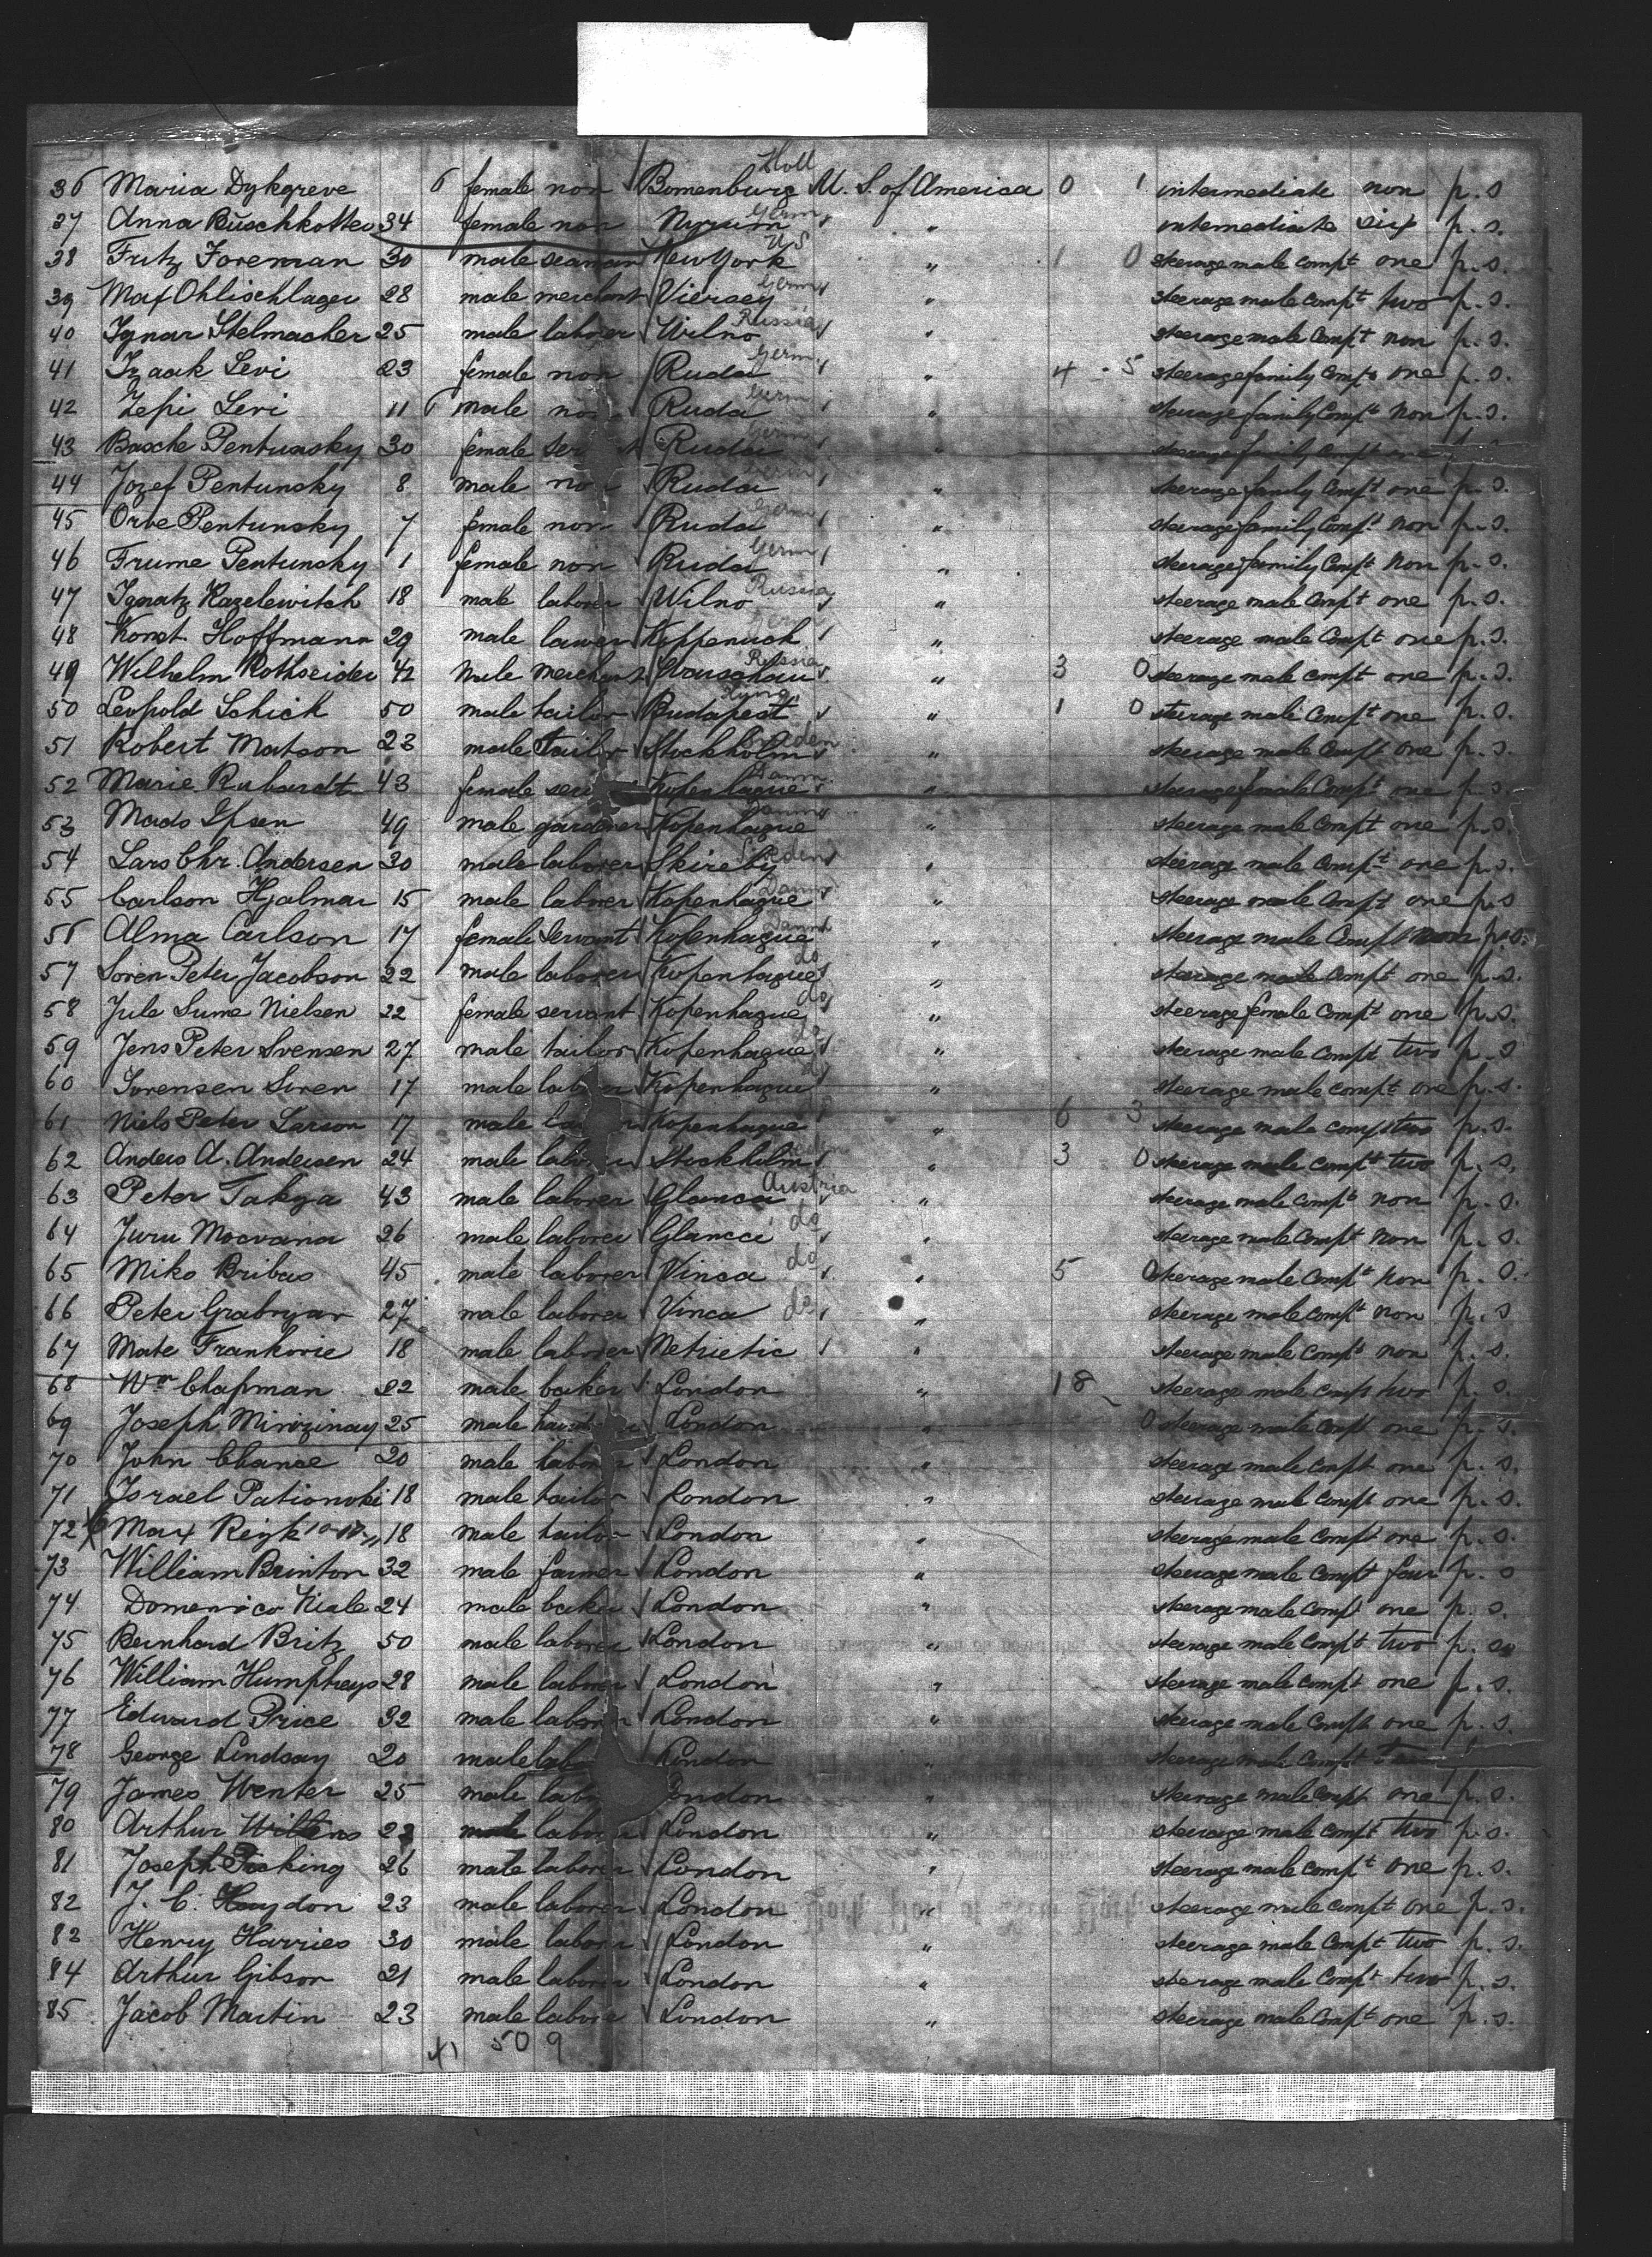 36 Maria Dykgreve 6 female non Bomenburg Holl U. S. of America 0 1 intermediate non p. s
37 Anna Buschkotter 34 female non Germ " intermediate six p. s.
38 Fritz Foreman 30 male seaman New York U S " 1 0 steerage male compt one p. s.
39 Max Ohlischlager 28 male merchant Viersey Germ " steerage male Compt two p. s.
40 Ignar Stelmacher 25 male laborer Wilno Russia " steerage male Compt non p. s.
41 Izaak Levi 23 female non Ruda Germ " 4 - 5 steerage family Compt one p. s.
42 Zepi Levi 11 male non Ruda Germ " steerage family Compt non p. s.
43 Basche Pentunsky 30 female Ruda Germ " steerage family Compt one
44 Jozef Pentunsky 8 male non Ruda Germ " steerage family Compt one p. s.
45 Orve Pentunsky 7 female non Ruda Germ " steerage family Compt non p. s.
46 Frume Pentunsky 1 female non Ruda Germ " steerage family Compt non p. s.
47 Ignatz Kazelewitch 18 male laborer Wilno Russia " steerage male Compt one p. s.
48 Konst. Hoffmann 29 male lawer Keppenich Germ " steerage male Compt one p. s.
49 Wilhelm Rothseider 42 male merchant Russia " 3 0 steerage male compt one p. s.
50 Leopold Schick 50 male tailor Budapest Hung " 1 0 steerage male Compt one p. s.
51 Robert Matson 23 male tailor Stockholm Sweden " steerage male Compt one p. s.
52 Marie Rubardt 43 female Kopenhague Danm. " steerage female Compt one p. s.
53 Mads Ipsen 49 male gardener Kopenhague Danm " steerage male Compt one p. s.
54 Lars Chr. Andersen 30 male laborer Skireby Sweden " steerage male Compt one p. s.
55 Carlson Hjalmar 15 male laborer Kopenhague Danm " steerage male Compt one p. s
56 Alma Carlson 17 female servant Kopenhague Danm " steerage male Compt non p. s.
57 Soren Peter Jacobson 22 male laborer Kopenhague do " steerage male Compt one p. s.
58 Jule Sume Nielsen 22 female servant Kopenhague do " steerage female Compt one p. s.
59 Jens Peter Svensen 27 male tailor Kopenhague do " steerage male Compt two p. s
60 Sorensen Soren 17 male laborer Kopenhague do " steerage male compt one p. s.
61 Niels Peter Larson 17 male Kopenhague " 6 3 steerage male compt two p. s.
62 Anders A. Andersen 24 male laborer Stockholm " 3 0 steerage male compt two p. s.
63 Peter Takga 43 male laborer Glanca Austria " steerage male Compt non p. s.
64 Juru Mocvana 26 male laborer Glancci do " steerage male Compt non p. s.
65 Miko Bribas 45 male laborer Vinca do " 5 0 steerage male Compt non p. s.
66 Peter Grabryan 27 male laborer Vinca do " steerage male compt non p. s
67 Mate Frankovic 18 male laborer Netrietic " steerage male Compt non p. s.
68 Wm Chapman 22 male baker London " 18 steerage male Compt two p. s.
69 Joseph Mirozinay 25 male London " 0 steerage male Compt one p. s.
70 John Chance 20 male laborer London " steerage male Compt one p. s.
71 Israel Pationski 18 male tailor London " steerage male Compt one p. s.
72 Max Reizk 18 male tailor London " steerage male Compt one p. s.
73 William Brinton 32 male farmer London " steerage male Compt four p. s
74 Domenico Viale 24 male baker London " steerage male Compt one p. s.
75 Bernhard Britz 50 male laborer London " steerage male Compt two p. s.
76 William Humphreys 28 male laborer London " steerage male Compt one p. s.
77 Edward Price 32 male laborer London " steerage male Compt one p. s.
78 George Lindsay 20 male London " steerage male Compt two
79 James Wenter 25 male London " steerage male Compt one p. s.
80 Arthur Willens 22 male laborer London " steerage male Compt two p. s.
81 Joseph 26 male laborer London " steerage male Compt one p. s.
82 J. C. Haydon 23 male laborer London " steerage male Compt one p. s.
83 Henry Harries 30 male laborer London " steerage male Compt two p. s.
84 Arthur Gibson 21 male laborer London " steerage male Compt two p. s.
85 Jacob Martin 23 male laborer London " steerage male Compt one p. s.
41 50 9